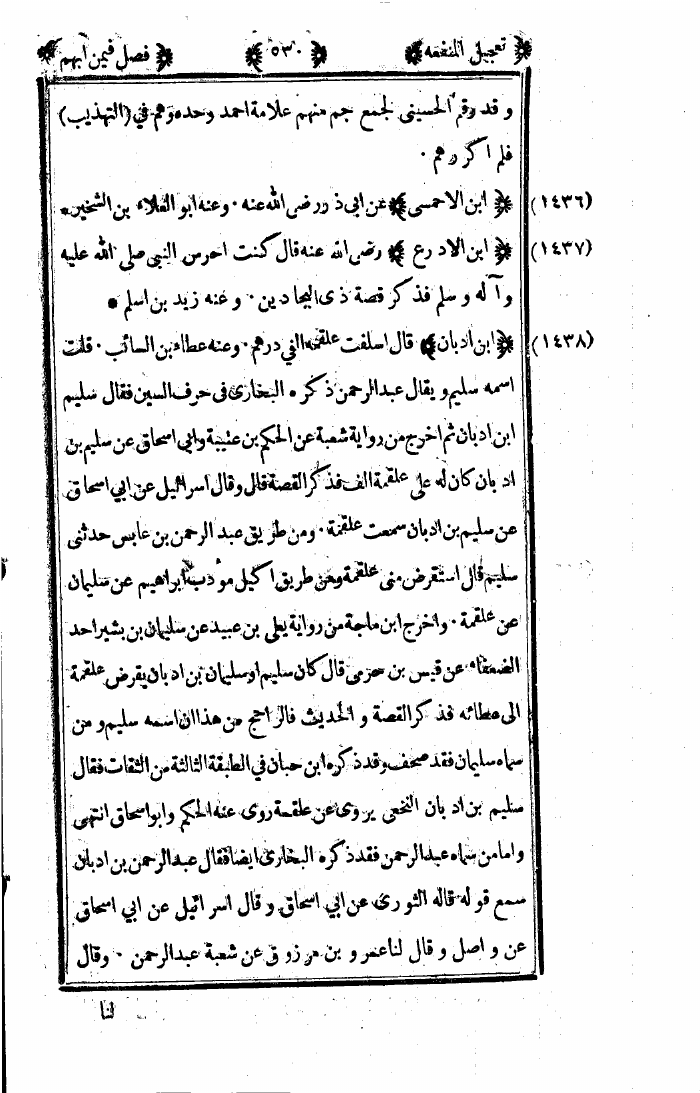 ﴿ تعجيل المنفعه ﴾ ﴿ ٥٣٠ ﴾ ﴿ فصل فيمن ابهم ﴾
و قد رقم الحسينى لجمع جم منهم علامة احمد وحده وهم في (التهذيب)
فلم اكررهم ٠
(١٤٣٦) ﴿ ابن الاحمسى ﴾ عن ابى ذر رضى الله عنه ٠ وعنه ابو العلاء بن الشخير ٠
(١٤٣٧) ﴿ ابن الادرع ﴾ رضى الله عنه قال كنت احرس النبي صلى الله عليه
وآله وسلم فذكر قصة ذى البجادين ٠ وعنه زيد بن اسلم ٠
(١٤٣٨) ﴿ ابن اذبان ﴾ قال اسلفت علقمة الفي درهم ٠ وعنه عطاء بن السائب ٠ قلت
اسمه سليم و يقال عبد الرحمن ذكره البخارى فى حرف السين فقال سليم
ابن اذبان ثم اخرج من رواية شعبة عن الحكم بن عتيبة وابي اسحاق عن سليم بن
اذبان كان له على علقمة الف فذكر القصة قال وقال اسرائيل عن ابي اسحاق
عن سليم بن اذبان سمعت علقمة ٠ ومن طريق عبد الرحمن بن عابس حدثنى
سليم قال استقرض منى علقمة ومن طريق اكيل مؤذب ابراهيم عن سليمان
عن علقمة ٠ واخرج ابن ماجة من رواية يعلى بن عبيد عن سليمان بن بشير احد
الضعفاء عن قيس بن حزمى قال كان سليم او سليمان بن اذبان يقرض علقمة
الى عطائه فذكر القصة و الحديث فالراجح من هذا ان اسمه سليم و من
سماه سليمان فقد صحف وقد ذكره ابن حبان في الطبقة الثالثة من الثقات فقال
سليم بن اذبان النخعى يروى عن علقمة روى عنه الحكم وابو اسحاق انتهى
واما من سماه عبد الرحمن فقد ذكره البخارى ايضا فقال عبد الرحمن بن اذبان
سمع قوله قاله الثورى عن ابي اسحاق وقال اسرائيل عن ابي اسحاق
عن واصل وقال لنا عمرو بن مرزوق عن شعبة عبد الرحمن ٠ وقال
لنا